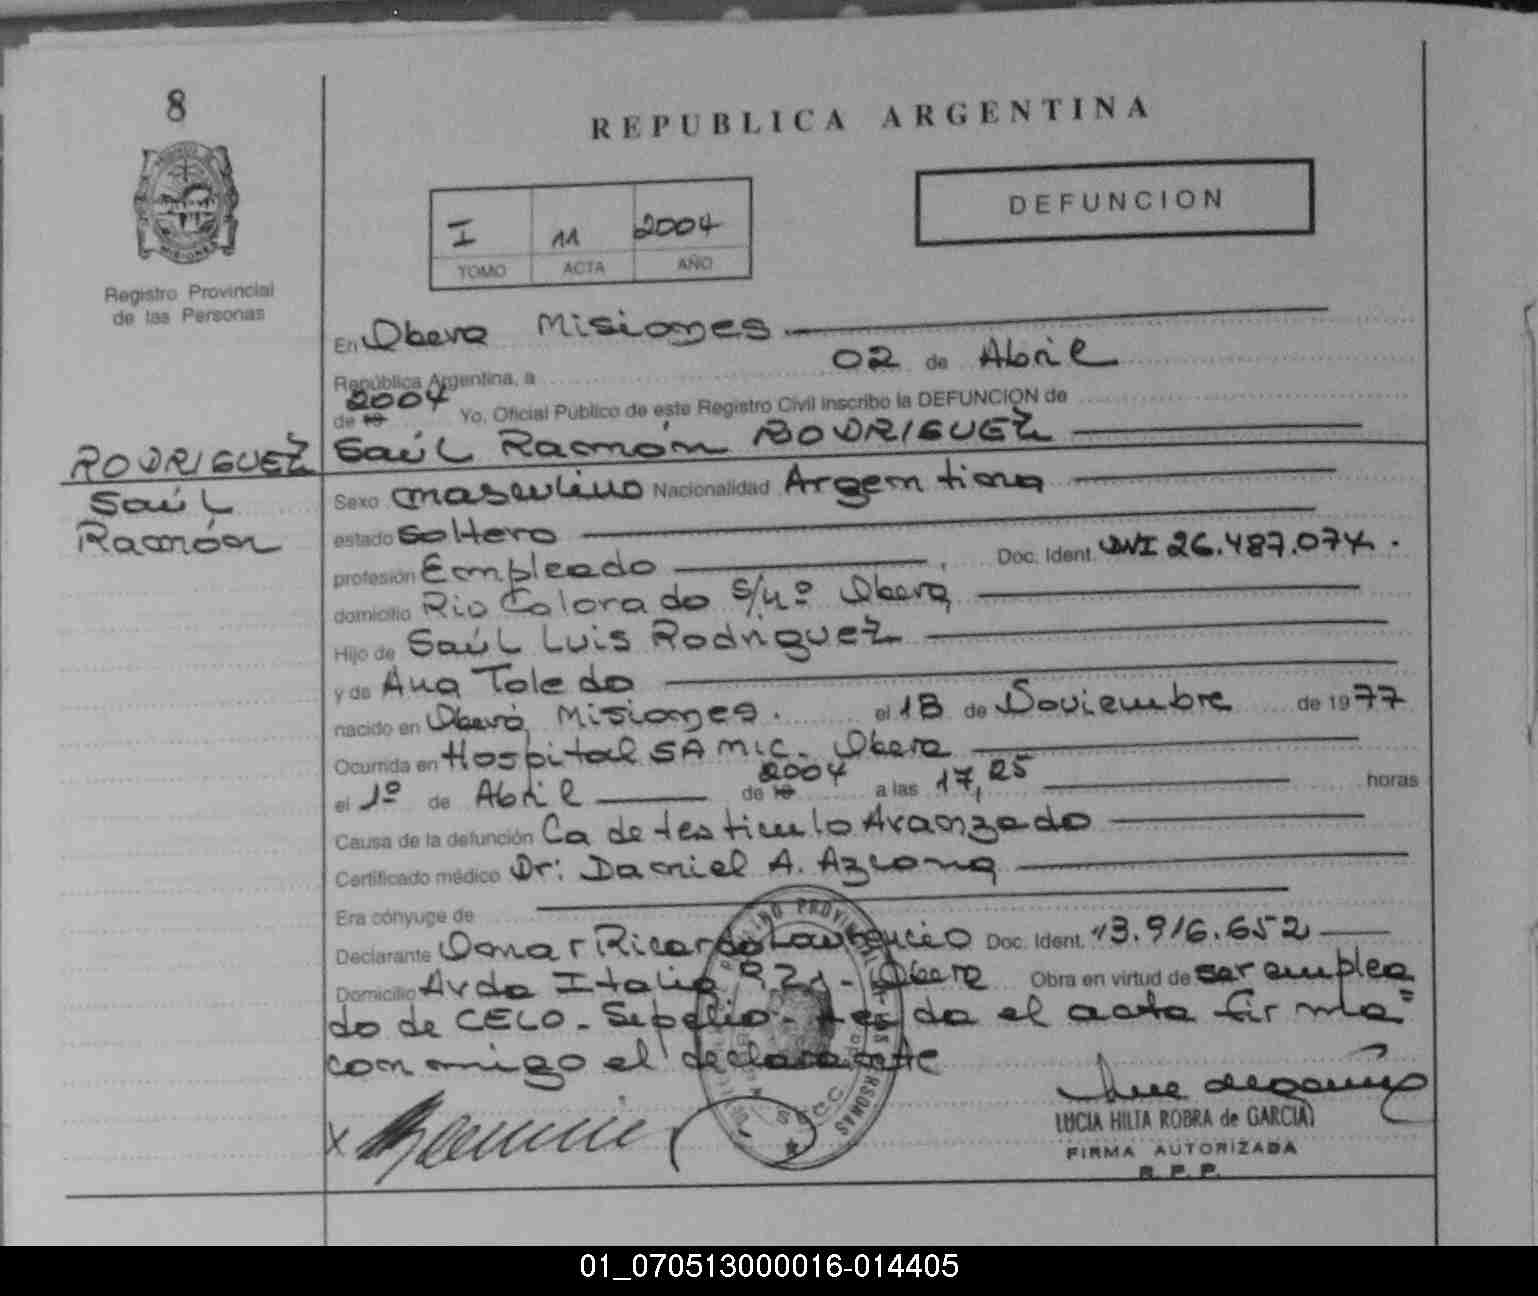 8
REPUBLICA ARGENTINA
DEFUNCION
I 11 2004
TOMO ACTA AÑO
Registro Provincial
de las Personas
En Obera Misiones
República Argentina, a 02 de Abril
de 19 2004 Yo, Oficial Público de este Registro Civil inscribo la DEFUNCION de
RODRIGUEZ Saúl Ramón RODRIGUEZ
Saúl
Ramón
Sexo masculino Nacionalidad Argentina
estado Soltero
profesión Empleado, Doc. Ident. DNI 26.487.074.
domicilio Rio Colorado S/nº Obera
Hijo de Saúl Luis Rodriguez
y de Ana Toledo
nacido en Oberá, Misiones. el 18 de Noviembre de 1977
Ocurrida en Hospital SAMIC. Obera
el 1º de Abril de 19 2004 a las 17,25 horas
Causa de la defunción Ca de testiculo Avanzado
Certificado médico Dr: Daniel A. Azcona
Era cónyuge de
Declarante Omar Ricardo Doc. Ident. 13.916.652
Domicilio Avda Italia Obera Obra en virtud de ser emplea
do de CELO - Sepelio - Leida el acta firma=
conmigo el declarante
LUCIA HILTA ROBRA de GARCIA
FIRMA AUTORIZADA
R. P. P.
01_070513000016-014405